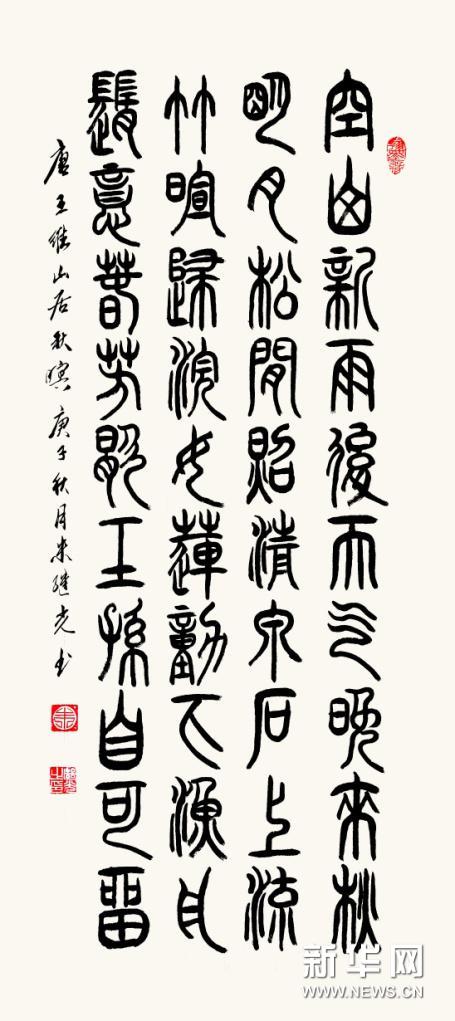 空山新雨後天气晚來秋
明月松間照清泉石上流
竹喧歸浣女蓮動下漁舟
隨意春芳歇王孫自可留
唐王维山居秋暝 庚子秋月朱继光书
新华网
WWW.NEWS.CN